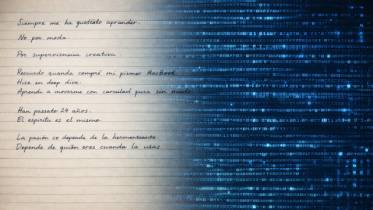 Siempre me ha gustado aprender.
No por moda
Por supervivencia creativa
Recuerdo cuando compré mi primer MacBook
Hice un deep dive.
Aprendí a moverme con curiosidad pura sin miedo
Han pasado 24 años.
El espíritu es el mismo
La pasión se depende de la herramienta
Depende de quién eres cuando la usas